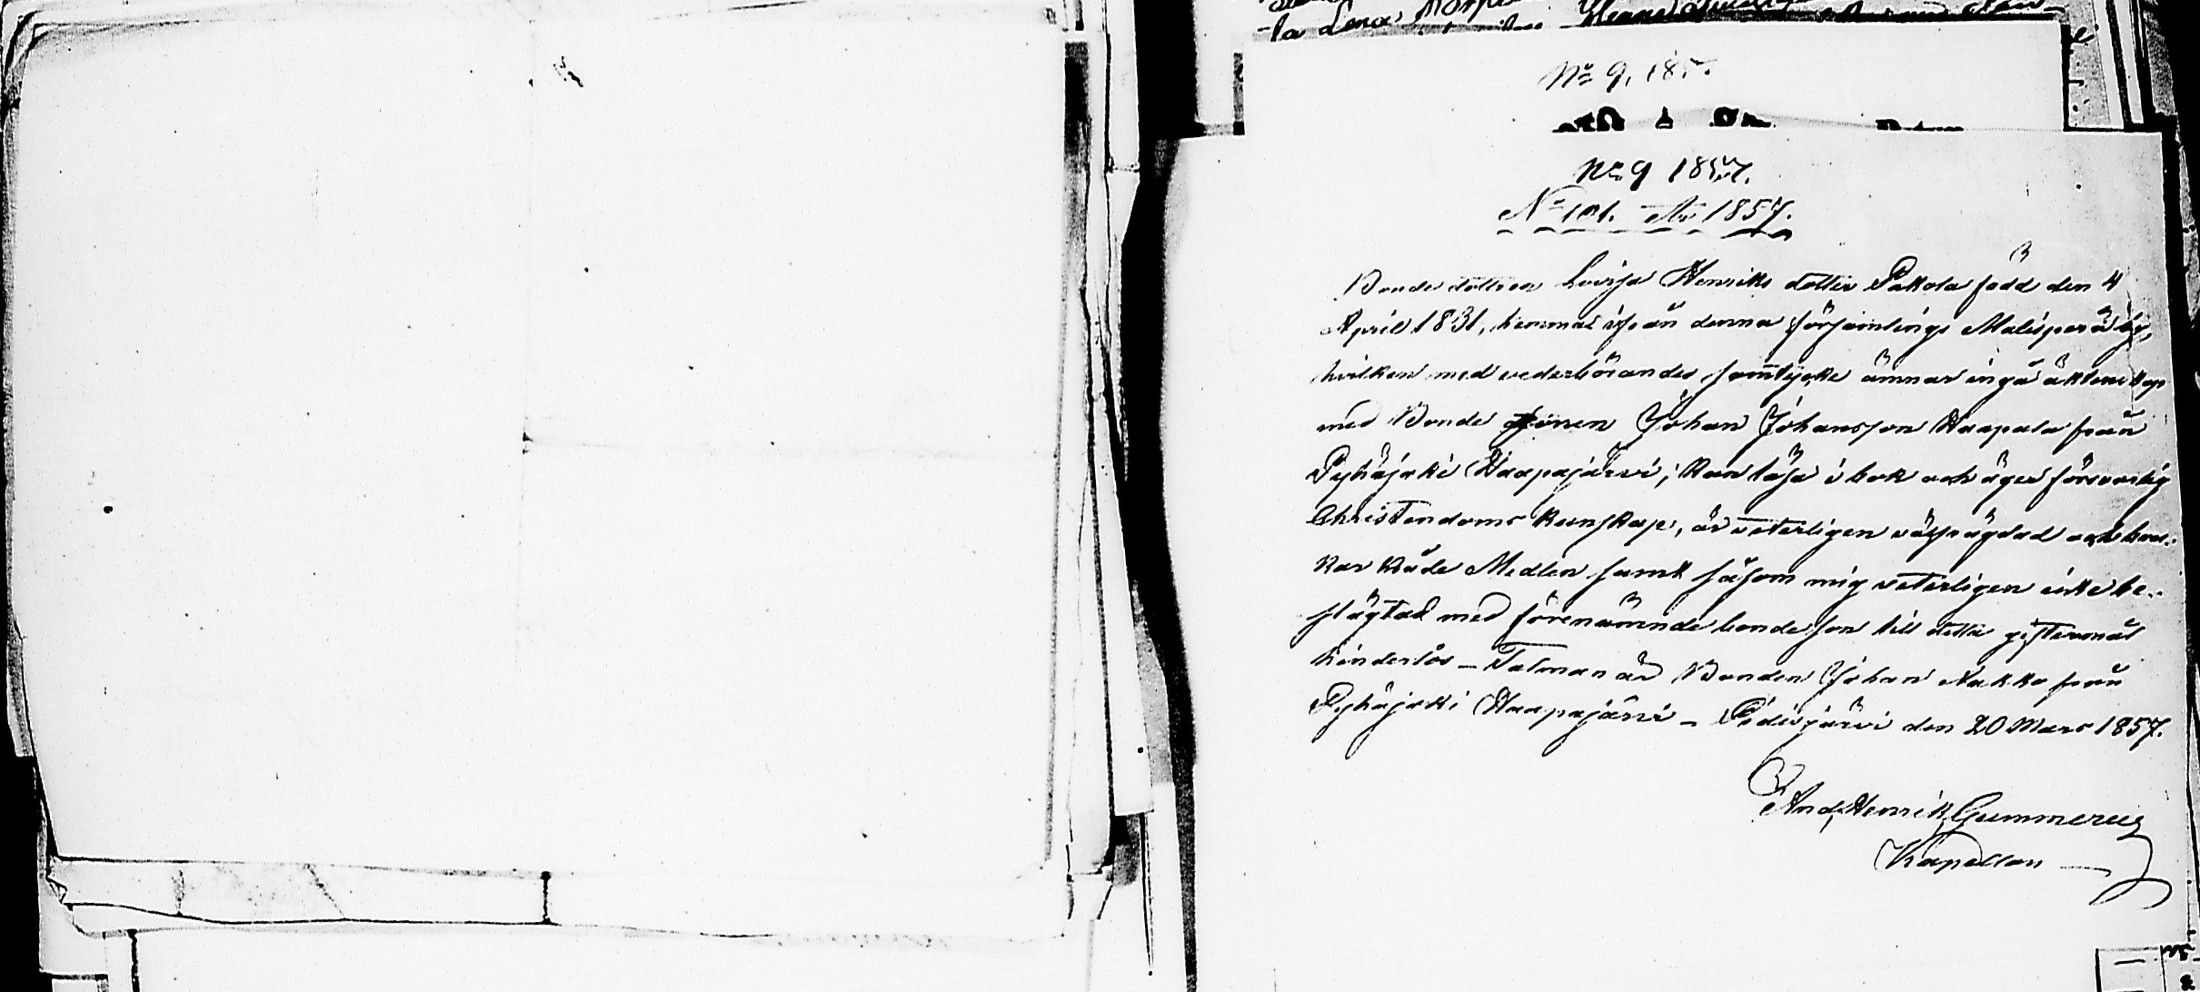 la Lena
No 9, 185
No 9 1857.
No 101. År 1857.
Bonde dottren Lovisa Henriks dotter Pakola född den 4
April 1831, hemma ifrån denna församlings Malisperä by,
hvilken med vederbörandes samtycke ämnar ingå äktenskap
med Bonde sonen Johan Johansson Haapala från
Pyhäjoki Haapajärvi; kan läsa i bok och äger försvarlig
Christendoms kunskap, är veterligen välfrägdad och bru-
kar både Medlen samt såsom mig veterligen icke be-
slägtad med förenämnde bonde son till detta giftermål
hinderlös – Talman är Bonden Johan Nakko från
Pyhäjoki Haapajärvi – Pidisjärvi den 20 Mars 1857.
And. Henrik Gummerus
Kapellan